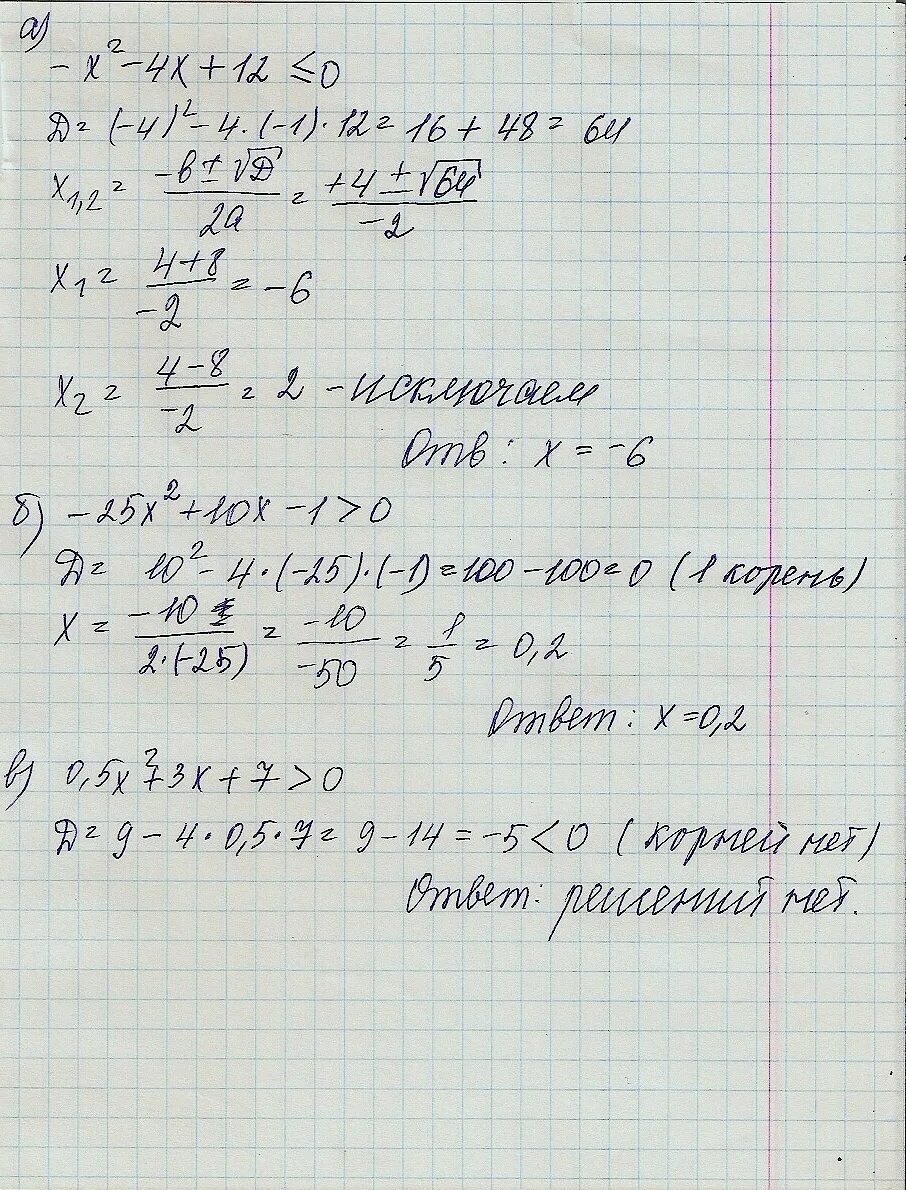 а)
-x² - 4x + 12 ≤ 0
D = (-4)² - 4·(-1)·12 = 16 + 48 = 64
x₁,₂ = (-b ± √D)/(2a) = (+4 ± √64)/(-2)
x₁ = (4+8)/(-2) = -6
x₂ = (4-8)/(-2) = 2 - исключаем
Отв: x = -6
б) -25x² + 10x - 1 > 0
D = 10² - 4·(-25)·(-1) = 100 - 100 = 0 (1 корень)
x = (-10)/(2·(-25)) = (-10)/(-50) = 1/5 = 0,2
Ответ: x = 0,2
в) 0,5x² + 3x + 7 > 0
D = 9 - 4·0,5·7 = 9 - 14 = -5 < 0 (корней нет)
Ответ: решений нет.